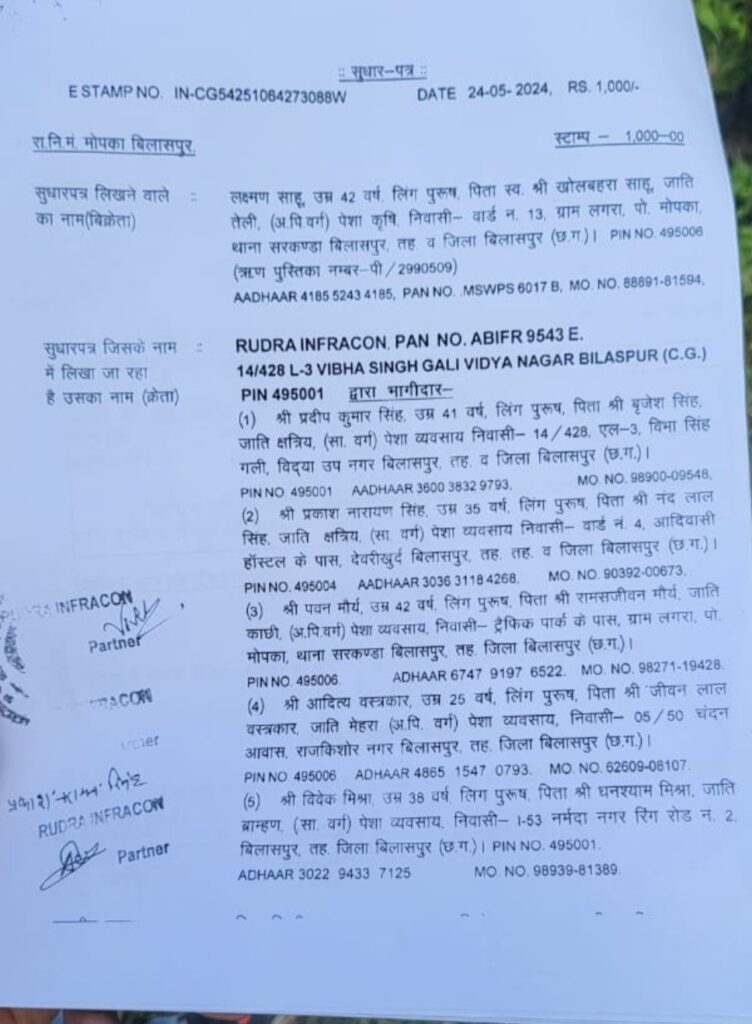 :: सुधार–पत्र ::
E STAMP NO. IN-CG54251064273088W DATE 24-05-2024, RS. 1,000/-
रा.नि.मं. मोपका बिलासपुर, स्टाम्प – 1,000–00
सुधारपत्र लिखने वाले :: लक्ष्मण साहू, उम्र 42 वर्ष, लिंग पुरूष, पिता स्व. श्री खोलबहरा साहू, जाति
का नाम(बिक्रेता) तेली, (अ.पि.वर्ग) पेशा कृषि, निवासी– वार्ड न. 13, ग्राम लगरा, पो. मोपका,
थाना सरकण्डा बिलासपुर, तह. व जिला बिलासपुर (छ.ग.)। PIN NO. 495006
(ऋण पुस्तिका नम्बर–पी/2990509)
AADHAAR 4185 5243 4185, PAN NO. .MSWPS 6017 B, MO. NO. 88891-81594,
सुधारपत्र जिसके नाम :: RUDRA INFRACON, PAN NO. ABIFR 9543 E.
में लिखा जा रहा 14/428 L-3 VIBHA SINGH GALI VIDYA NAGAR BILASPUR (C.G.)
है उसका नाम (क्रेता) PIN 495001 द्वारा भागीदार–
(1) श्री प्रदीप कुमार सिंह, उम्र 41 वर्ष, लिंग पुरूष, पिता श्री बृजेश सिंह,
जाति क्षत्रिय, (सा. वर्ग) पेशा व्यवसाय निवासी– 14/428, एल–3, विभा सिंह
गली, विद्या उप नगर बिलासपुर, तह. व जिला बिलासपुर (छ.ग.)।
PIN NO. 495001 AADHAAR 3600 3832 9793, MO. NO. 98900-09548,
(2) श्री प्रकाश नारायण सिंह, उम्र 35 वर्ष, लिंग पुरूष, पिता श्री नंद लाल
सिंह, जाति क्षत्रिय, (सा. वर्ग) पेशा व्यवसाय निवासी– वार्ड नं. 4, आदिवासी
हॉस्टल के पास, देवरीखुर्द बिलासपुर, तह. तह. व जिला बिलासपुर (छ.ग.)।
PIN NO. 495004 AADHAAR 3036 3118 4268, MO. NO. 90392-00673,
(3) श्री पवन मौर्य, उम्र 42 वर्ष, लिंग पुरूष, पिता श्री रामसजीवन मौर्य, जाति
काछी, (अ.पि.वर्ग) पेशा व्यवसाय, निवासी– ट्रैफिक पार्क के पास, ग्राम लगरा, पो.
मोपका, थाना सरकण्डा बिलासपुर, तह. जिला बिलासपुर (छ.ग.)।
PIN NO. 495006. ADHAAR 6747 9197 6522. MO. NO. 98271-19428.
(4) श्री आदित्य वस्त्रकार, उम्र 25 वर्ष, लिंग पुरूष, पिता श्री जीवन लाल
वस्त्रकार, जाति मेहरा (अ.पि. वर्ग) पेशा व्यवसाय, निवासी– 05/50 चंदन
आवास, राजकिशोर नगर बिलासपुर, तह. जिला बिलासपुर (छ.ग.)।
PIN NO 495006. ADHAAR 4865 1547 0793. MO. NO. 62609-08107.
(5) श्री विवेक मिश्रा, उम्र 38 वर्ष, लिंग पुरूष, पिता श्री घनश्याम मिश्रा, जाति
ब्राम्हण, (सा. वर्ग) पेशा व्यवसाय, निवासी– I-53 नर्मदा नगर रिंग रोड न. 2,
बिलासपुर, तह. जिला बिलासपुर (छ.ग.)। PIN NO. 495001.
ADHAAR 3022 9433 7125 MO. NO. 98939-81389.
RUDRA INFRACON
Partner
RUDRA INFRACON
Partner